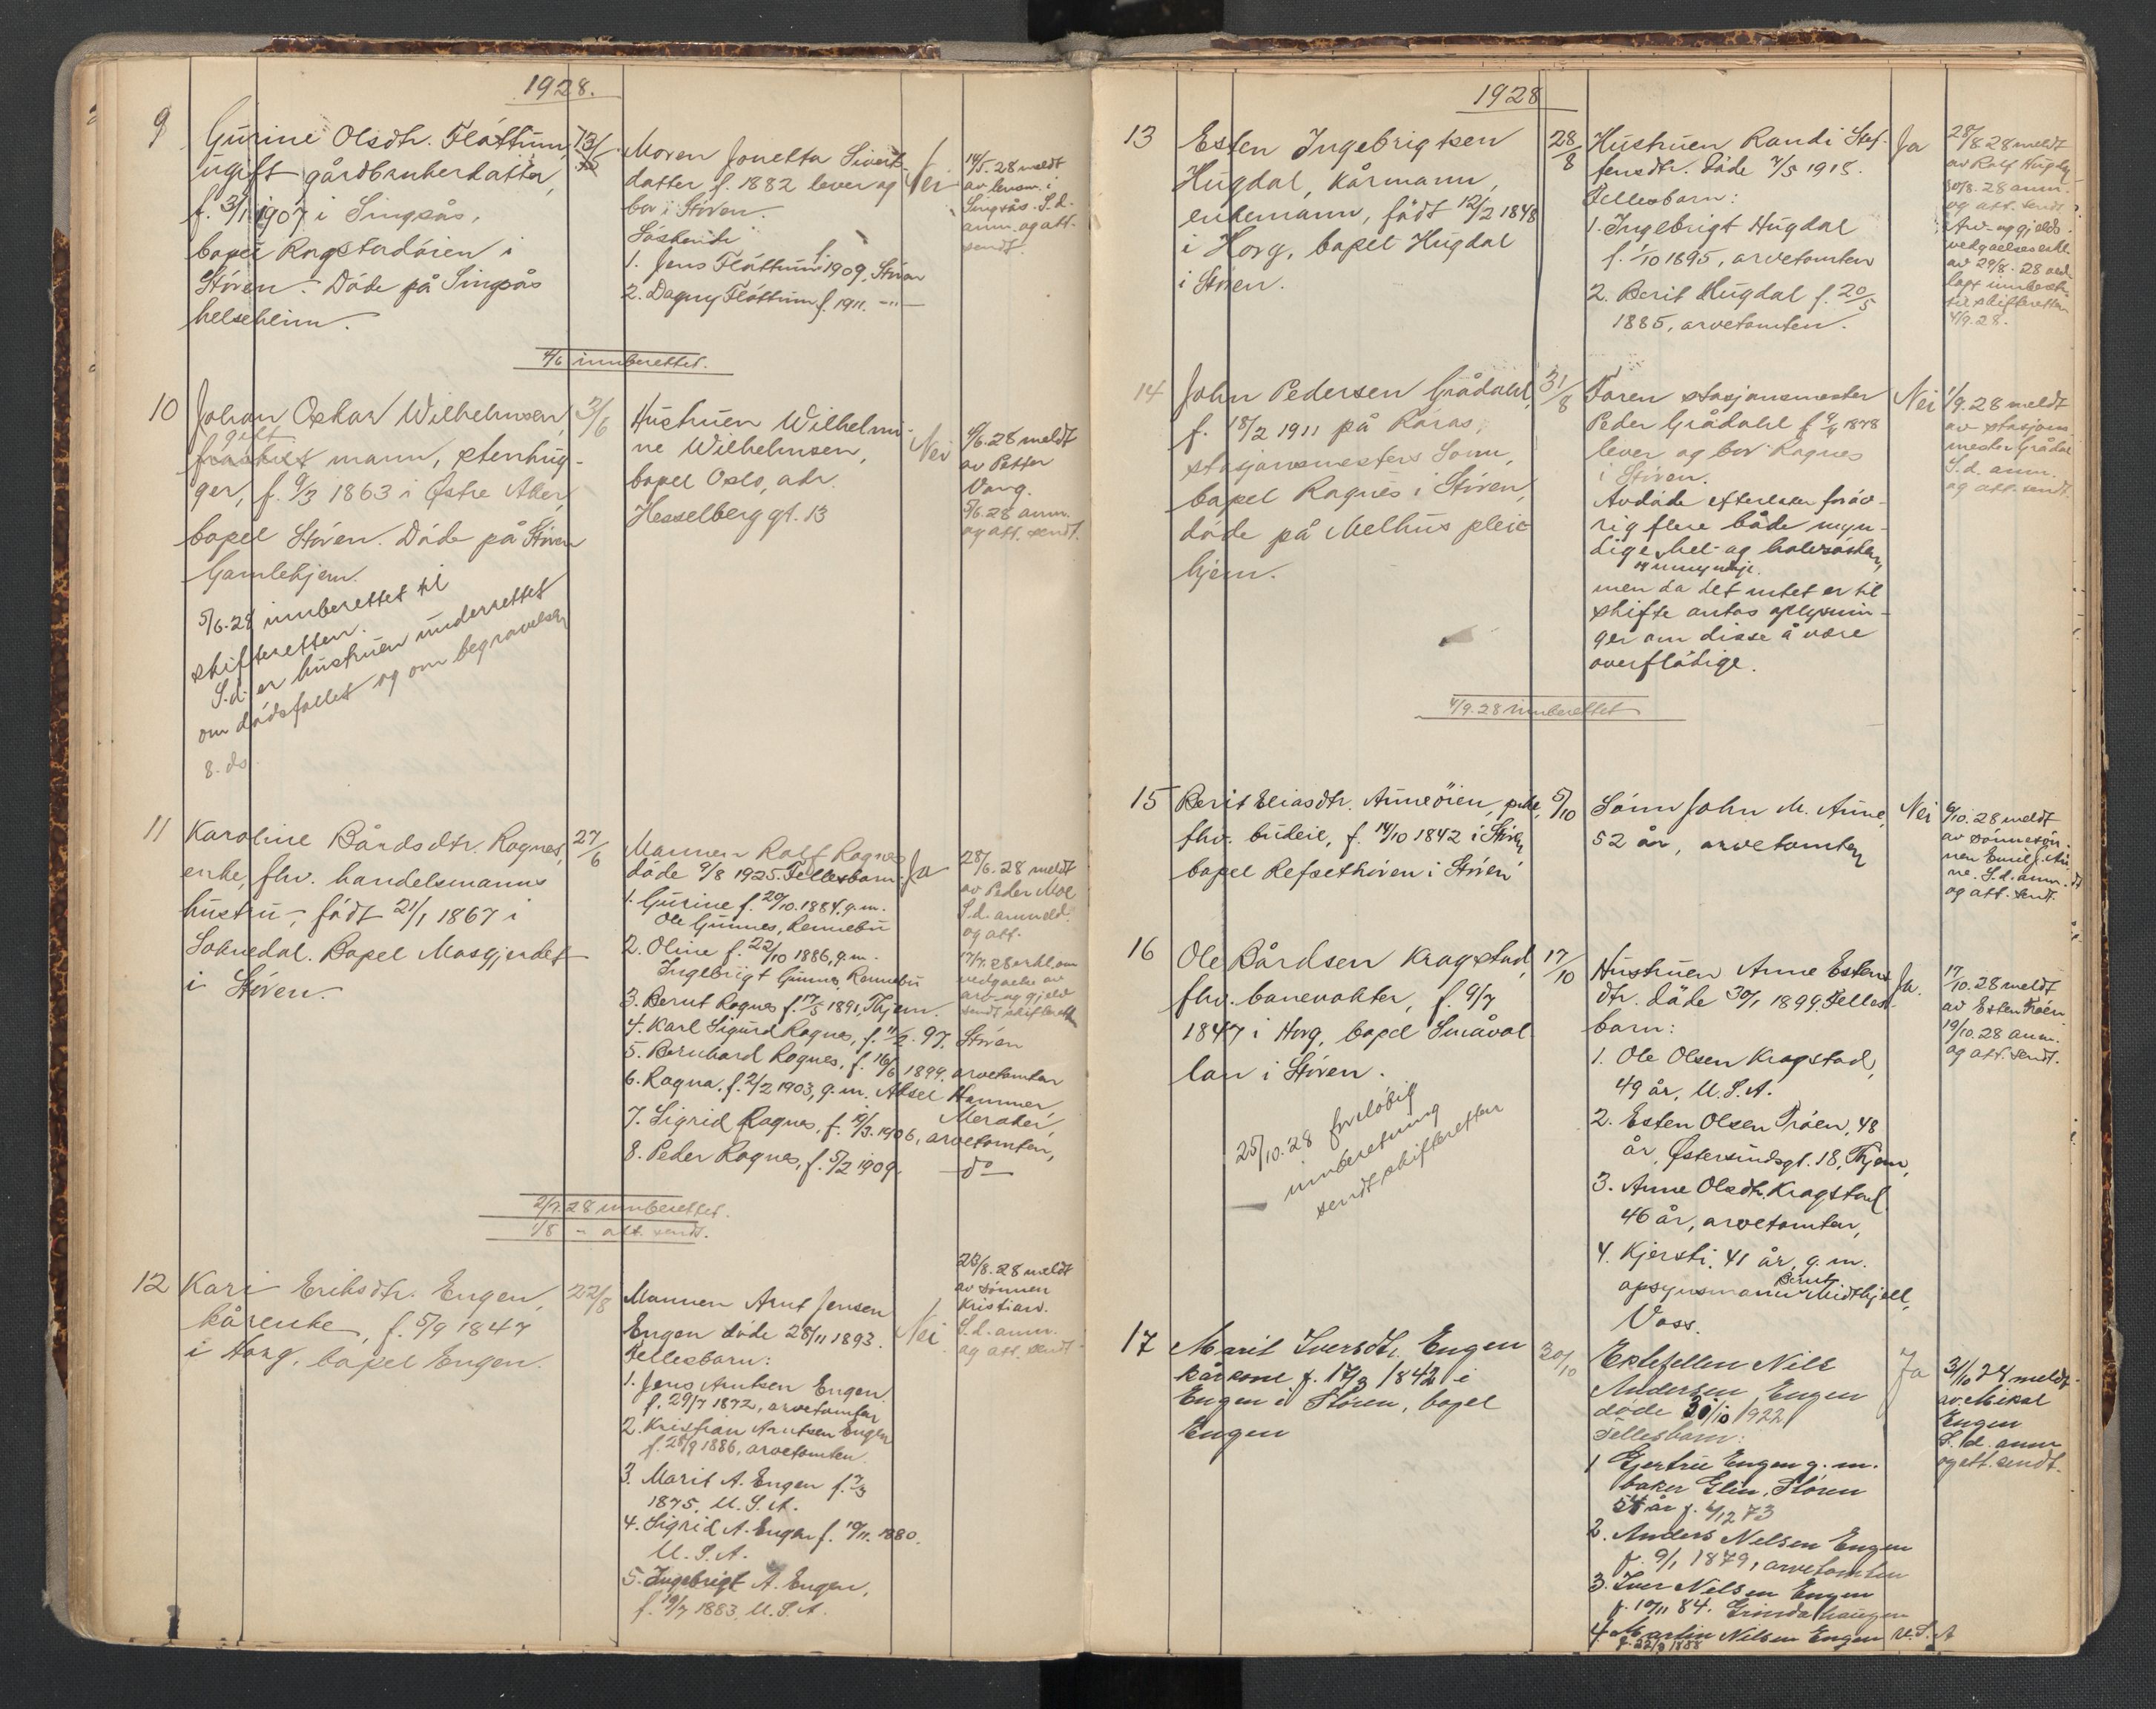 1928.
9
Gurine Olsdtr. Fløttum,
ugift gårdbrukerdatter,
f. 3/1 1907 i Singsås,
bopel Rogstadøien i
Støren. Døde på Singsås
helseheim.
13/5
Moren Jonetta Sivert-
datter f. 1882 lever og
bor i Støren.
Søskende
1. Jens Fløttum f. 1909, Støren
2. Dagny Fløttum f. 1911. -"-
Nei
14/5.28 meldt
av lensm. i
Singsås. S.d.
anm. og att.
sendt.
4/6 innberettet.
10
Johan Oskar Wilhelmsen,
gift
fraskilt mann, stenhug-
ger, f. 9/3 1863 i Østre Aker,
bopel Støren. Døde på Støren
Gamlehjem.
5/6.28 innberettet til
skifteretten.
S.d. er hustruen underrettet
om dødsfallet og om begravelsen
8. ds.
3/6
Hustruen Wilhelmi-
ne Wilhelmsen,
bopel Oslo, adr.
Hesselberg gt. 13
Nei
4/6.28 meldt
av Petter
Vang.
5/6.28 anm.
og att. sendt.
11
Karoline Bårdsdtr. Rognes,
enke, fhv. handelsmanns
hustru, født 21/1 1867 i
Soknedal. Bopel Mosgjerdet
i Støren.
27/6
Mannen Rolf Rognes
døde 9/8 1925. Fellesbarn:
1. Gurine f. 20/10.1884, g.m.
Ole Gunnes, Rennebu
2. Oline f. 22/10 1886, g.m.
Ingebrigt Gunnes, Rennebu
3. Bernt Rognes f. 17/5 1891, Thjem.
4. Karl Sigurd Rognes, f. 11/2.97. Støren
5. Bernhard Rognes, f. 16/6 1899, arvetomten
6. Ragna, f. 2/2 1903, g.m. Aksel Hammer,
Meraker,
7. Sigrid Rognes, f. 12/3.1906, arvetomten,
8. Peder Rognes, f. 5/2 1909. do
Ja
28/6.28 meldt
av Peder Moe
S.d. anmeld.
og att.
17/7.28 erkl. om
vedgåelse av
arv og gjeld
sendt skifterett
2/7.28 innberettet.
1/8 - att. sendt.
12
Kari Eriksdtr. Engen,
kårenke, f. 5/9 1847
i Horg, bopel Engen.
22/8
Mannen Arnt Jensen
Engen døde 28/11 1893.
Fellesbarn:
1. Jens Arntsen Engen
f. 29/7 1872, arvetomten
2. Kristian Arntsen Engen
f. 28/9 1886, arvetomten.
3. Marit A. Engen f. 7/3
1875. U.S.A.
4. Sigrid A. Engen f. 10/11.1880.
U.S.A.
5. Ingebrigt A. Engen,
f. 19/7 1883, U.S.A.
Nei
23/8.28 meldt
av sønnen
Kristian.
S.d. anm.
og att. sendt.
1928
13
Esten Ingebrigtsen
Hugdal, kårmann,
enkemann, født 12/2 1848
i Horg, bopel Hugdal
i Støren.
28/8
Hustruen Randi Stef-
fensdtr. døde 7/5 1918.
Fellesbarn:
1. Ingebrigt Hugdal
f. 1/10 1895, arvetomten
2. Berit Hugdal f. 20/5
1885, arvetomten.
Ja
28/8 28 meldt
av Rolf Hugdal
30/8.28 anm.
og att. sendt
Arv- og gjelds
vedgåelseserkl.
av 29/8.28 ved-
lagt innberetn.
til skifteretten
4/9.28.
14
John Pedersen Grådahl,
f. 18/2 1911 på Røros,
stasjonsmesters Sønn,
bopel Rognes i Støren,
døde på Melhus pleie-
hjem.
31/8
Faren stasjonsmester
Peder Grådahl f. 9/4 1878
lever og bor Rognes
i Støren.
Avdøde efterlater forøv-
rig flere både myn-
dige hel- og halvsøsken,
og umyndige.
men da det intet er til
skifte antas oplysnin-
ger om disse å være
overflødige.
Nei
1/9.28 meldt
av stasjons
mester Grådal
S.d. anm.
og att. sendt.
4/9.28 innberettet
15
Berit Eliasdtr. Auneøien, enke,
fhv. budeie, f. 14/10 1842 i Støren
bopel Refsethøven i Støren
5/10
Sønn John M. Aune,
52 år, arvetomten
Nei
6/10.28 meldt
av sønnesøn-
nen Emil J. Au-
ne. S.d. anm.
og att. sendt.
16
Ole Bårdsen Kragstad,
fhv. banevakter, f. 9/7
1847 i Horg, bopel Småvol-
lan i Støren.
25/10.28 foreløbig
innberetning
sendt skifteretten
17/10
Hustruen Anne Estens-
dtr. døde 30/1 1899. Felles-
barn:
1. Ole Olsen Kragstad,
49 år, U.S.A.
2. Esten Olsen Trøen, 48
år, Østersundsgt. 18, Thjem,
3. Anne Olsdtr. Kragstad
46 år, arvetomten,
4. Kjersti, 41 år, g.m.
opsynsmann Bernt Midthjell,
Voss.
Ja.
17/10.28 meldt
av Esten Trøen
19/10.28 anm.
og att. sendt.
17
Marit Iversdtr. Engen
kårkone f. 17/3 1842 i
Engen i Støren, bopel
Engen
30/10
Ektefellen Nils
Andersen Engen
døde 30/10 1922
Fellesbarn:
1 Gjertru Engen g.m.
baker Glen, Støren
54 år f. 6/12 73
2. Anders Nilsen Engen
f. 9/1 1879, arvetomten
3. Iver Nilsen Engen
f. 10/11 84. Grindalhaugen
4. Martin Nilsen Engen U.S.A
f. 22/9 1888
Ja
31/10 28 meldt
av Mikal
Engen
S.d. anm
og att. sendt.